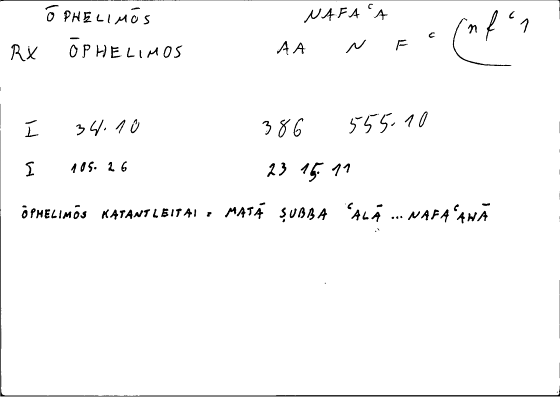 ŌPHELIMŌS NAFAʿA
RX ŌPHELIMOS AA N F ʿ (nfʿ1
I 34.10 386 555.10
I 105.26 23 15.11
ŌPHELIMŌS KATANTLEITAI = MATĀ ṢUBBA ʿALĀ ... NAFAʿAHĀ